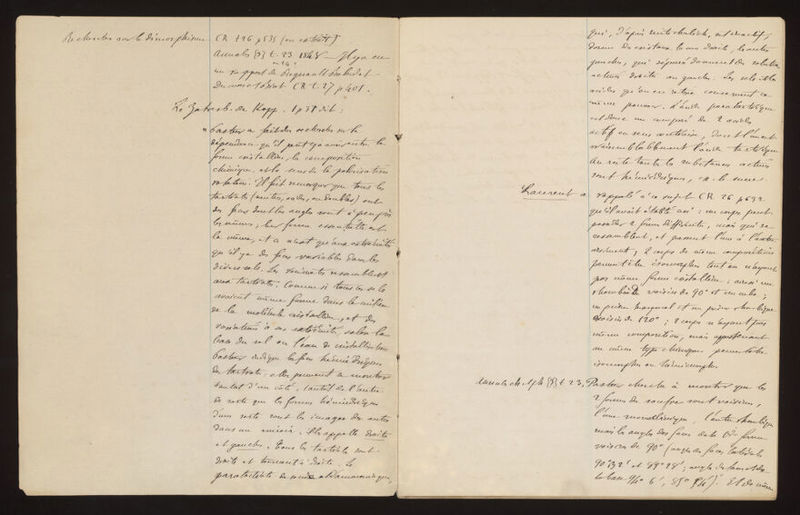 Recherches sur le dimorphisme
CR t 26 p 535 (en extrait)
Annales [3] t. 23 1848 — Il y a eu
un rapport de Regnault Balard et
Dumas CR t. 27 p 401.
Le Jahresb. de Kopp. 1 p 31 dit :
« Pasteur a fait des recherches sur la
dépendance qu'il peut y avoir entre la
forme cristalline, la composition
chimique, et le sens de la polarisation
rotatoire. Il fait remarquer que tous les
tartrates (neutres, acides, ou doubles) ont
des faces dont les angles sont à peu près
les mêmes; leur forme essentielle est
la même, et ce n'est qu'aux extrémités
qu'il y a des faces variables dans les
divers sels. Les racémates ressemblent
aux tartrates. Comme si tous ces sels
avaient même forme dans le milieu
de la molécule cristalline, et des
variations à ses extrémités, selon la
base du sel ou l'eau de cristallisation
Pasteur indique les faces hémiédriques
du tartrate; elles peuvent se montrer
tantôt d'un côté, tantôt de l'autre
de sorte que les formes hémiédriques
d'un reste sont les images des autres
dans un miroir. Il les appelle droite
et gauche. Tous les tartrates sont
droits et tournent à droite. Le
paratartrate de soude et d'ammoniaque,
qui, d'après Mitscherlich, est inactif,
donne des cristaux les uns droits, les autres
gauches, qui séparés donnent des solutions
actives droites ou gauches. Les sels et les
acides qu'on en retire conservent ce
même pouvoir. L'acide paratartrique
est donc un composé de 2 acides
actif en sens contraire, dont l'un est
vraisemblablement l'acide tartrique
Au reste toutes les substances actives
sont hémiédriques, ex. le sucre.
Laurent a rappelé à ce sujet CR 26 p 632
qu'il avait établi ceci : un corps peut
posséder 2 formes différentes, mais qui se
ressemblent, et passent l'une à l'autre
2 corps de même composition
peuvent être isomorphes tout en n'ayant
pas même forme cristalline; ainsi un
rhomboèdre voisin de 90° et un cube;
un prisme hexagonal et un prisme rhombique
voisin de 120°; 2 corps n'ayant pas
même composition, mais appartenant
au même type chimique peuvent être
isomorphes ou hémimorphes.
Annales ch. phy [3] t. 23, Pasteur cherche à montrer que les
2 formes du soufre sont voisines,
l'une monoclinique, l'autre rhombique
mais les angles des faces de la 1ère forme
voisins de 90° (angles des faces latérales
90°32' et 89°28', angle de la
base 94° 6', 85° 54'). Et de même